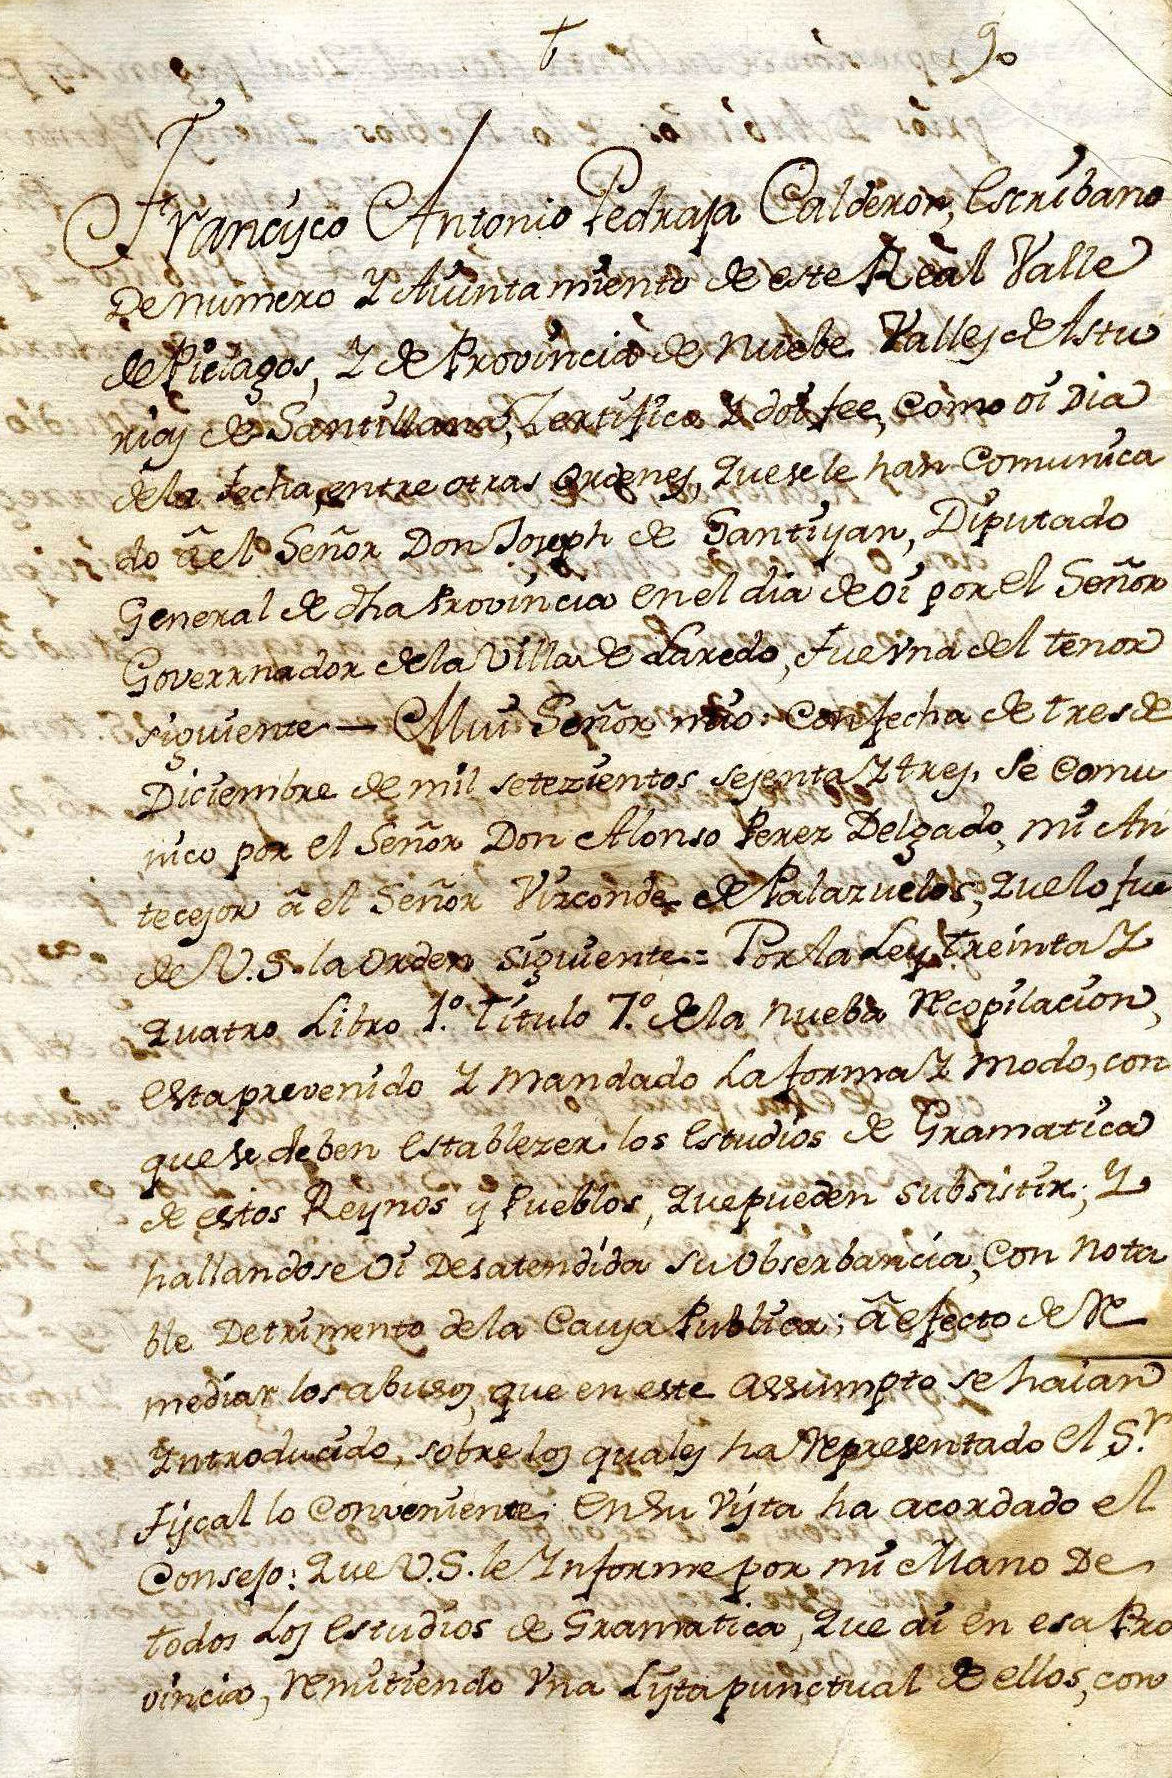 †
90
Francisco Antonio Pedraja Calderon, Escribano
De numero Y Aiuntamiento de este Real Valle
de Pielagos, Y de Provincia de nuebe Valles de Astu
rias de Santillana, Zertifico Y doi fee, como oi Dia
dela fecha, entre otras Ordenes, que se le han Comunica
do â el Señor Don Joseph de Santiyan, Diputado
General de dha Provincia en el dia de oi por el Señor
Goverrnador dela Villa de Laredo, fue vna del tenor
siguiente — Mui Señor mio: Con fecha de tres de
Diciembre de mil setezientos sesenta Y tres, se comu
nico por el Señor Don Alonso Perez Delgado, mi An
tecesor â el Señor Vizconde de Palazuelos, que lo fue
de V.S. la Orden siguiente = Por la Ley treinta Y
quatro Libro 1.º Titulo 7.º dela nueba Recopilacion,
esta prevenido Y mandado la forma Y modo, con
que se deben establezer los estudios de Gramatica
de estos Reynos y Pueblos, que pueden subsistir; Y
hallandose oi Desatendida su obserbancia, con nota
ble Detrimento dela Causa Publica; â efecto de Re
mediar los abusos, que en este assumpto se haian
Introducido, sobre los quales ha representado el S.r
Fiscal lo conveniente; en su vista ha acordado el
Consejo: que V.S. le Informe por mi Mano De
todos los estudios de Gramatica, que ai en esa Pro
vincia, remitiendo vna Lista punctual de ellos, con